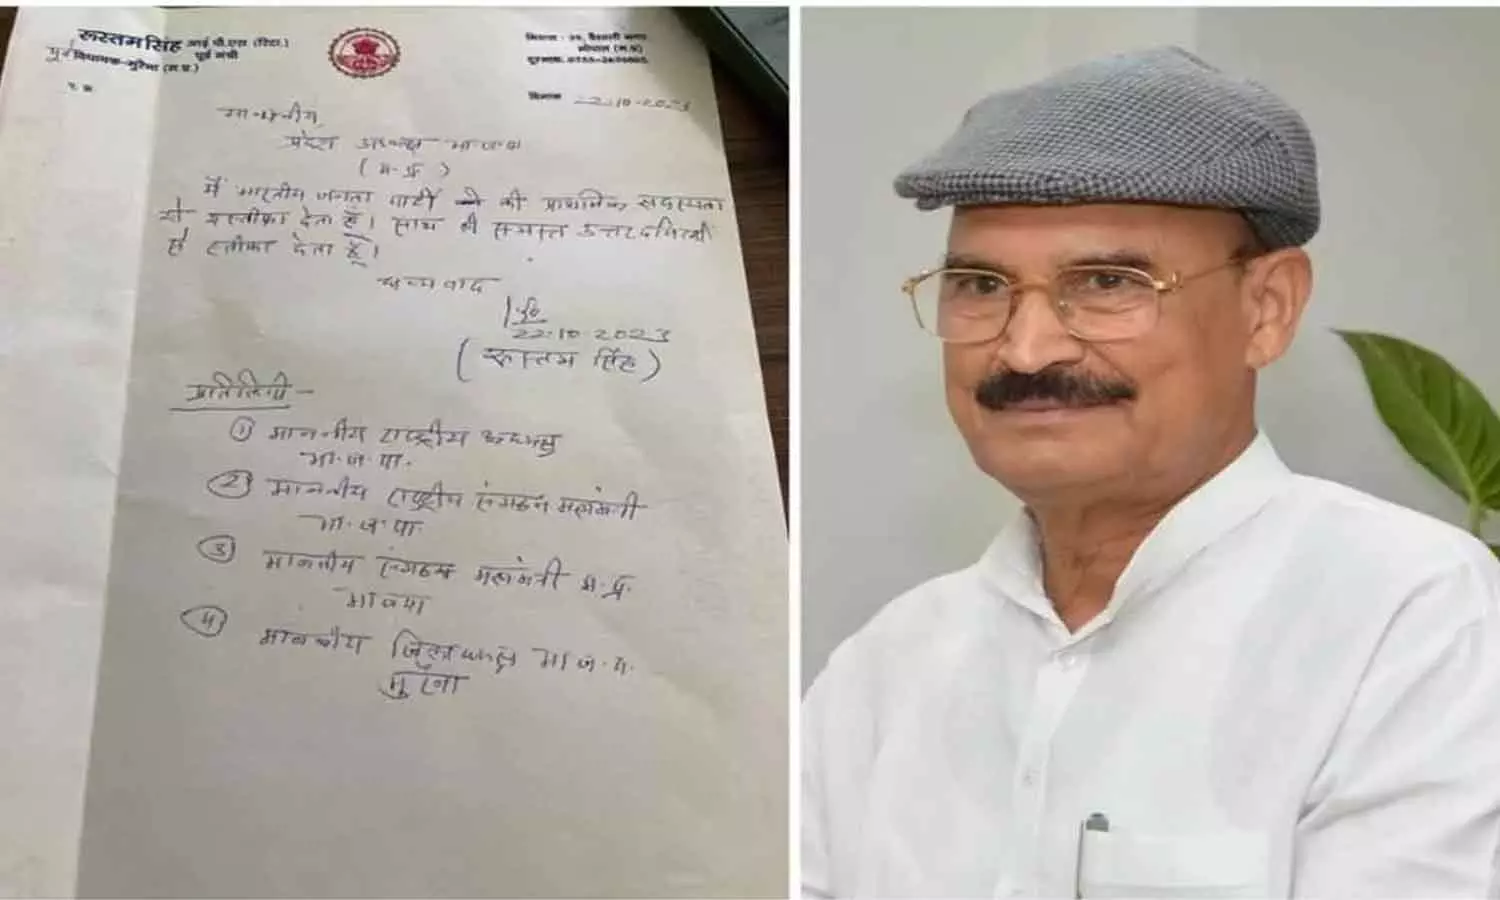 रुस्तम सिंह आई पी.एस (रिटा.)
पूर्व मंत्री
पूर्व विधायक-मुरैना (म.प्र.)
निवास :
भोपाल (म.प्र)
दूरभाष.
दिनांक 22.10.2023
माननीय,
प्रदेश अध्यक्ष भा.ज.पा
(म.प्र.)
मैं भारतीय जनता पार्टी की प्राथमिक सदस्यता
से स्तीफा देता हूँ। साथ ही समस्त
से स्तीफा देता हूँ।
धन्यवाद
22.10.2023
(रुस्तम सिंह)
प्रतिलिपी -
① माननीय राष्ट्रीय अध्यक्ष
भा.ज.पा.
② माननीय राष्ट्रीय संगठन महामंत्री
भा.ज.पा.
③ माननीय संगठन महामंत्री म.प्र.
भाजपा
④ माननीय जिलाध्यक्ष भा.ज.पा.
मुरैना